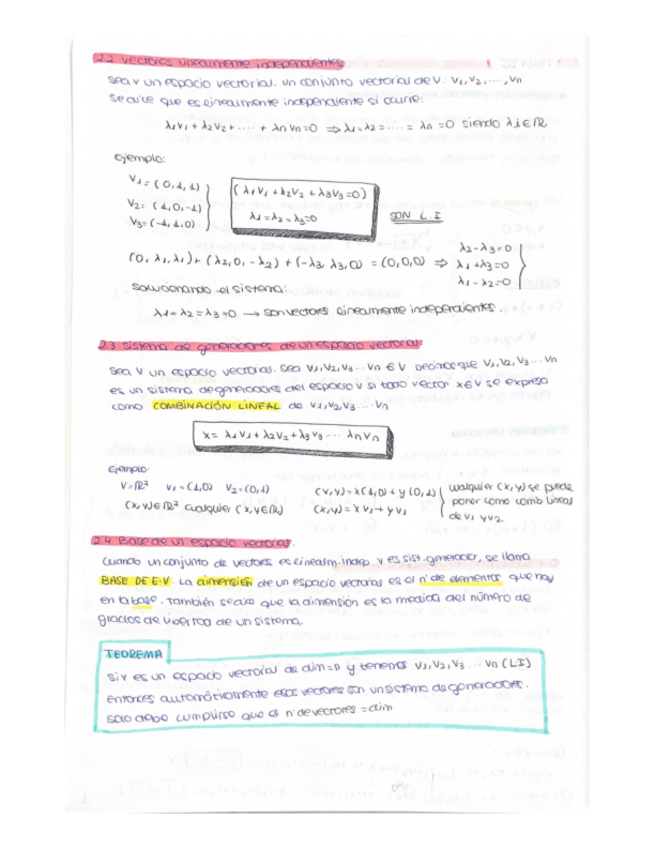 2.2 Vectores linealmente independientes
Sea V un espacio vectorial. Un conjunto vectorial de V: V1, V2, ...., Vn
Se dice que es linealmente independiente si ocurre:
λ1V1 + λ2V2 + .... + λnVn=0 ⇒ λ1=λ2=....= λn =0 siendo λi∈ℝ
Ejemplo:
V1= (0,1,1)
V2= (1,0,-1)
V3= (-1,1,0)
(λ1V1 + λ2V2 + λ3V3=0)
λ1=λ2=λ3=0
SON L.I
(0, λ1, λ1) + (λ2, 0, -λ2) + (-λ3, λ3, 0) = (0,0,0) ⇒
λ2-λ3=0
λ1+λ3=0
λ1-λ2=0
Solucionando el sistema:
λ1=λ2=λ3=0 → son vectores linealmente independientes.
2.3 Sistema de generadores de un espacio vectorial
Sea V un espacio vectorial. Sea V1, V2, V3 ... Vn ∈ V Decimos que V1, V2, V3 ... Vn
es un sistema de generadores del espacio V si todo vector x∈V se expresa
como COMBINACIÓN LINEAL de V1, V2, V3 .... Vn
x= λ1V1 + λ2V2 + λ3V3 .... λnVn
Ejemplo:
V=ℝ² V1=(1,0) V2=(0,1)
(x,y)∈ℝ² cualquier (x,y∈ℝ)
(x,y)= x(1,0) + y(0,1)
(x,y)= xV1 + yV2
cualquier (x,y) se puede
poner como comb. lineal
de V1 y V2.
2.4 Base de un espacio vectorial.
Cuando un conjunto de vectores es linealm. indep. y es sist. generador, se llama
BASE DE E.V. La dimensión de un espacio vectorial es el nº de elementos que hay
en la base. También se dice que la dimensión es la medida del número de
grados de libertad de un sistema.
TEOREMA
Si V es un espacio vectorial de dim=n y tenemos V1, V2, V3 ... Vn (LI)
Entonces automáticamente esos vectores son un sistema de generadores.
Solo debe cumplirse que el nº de vectores = dim